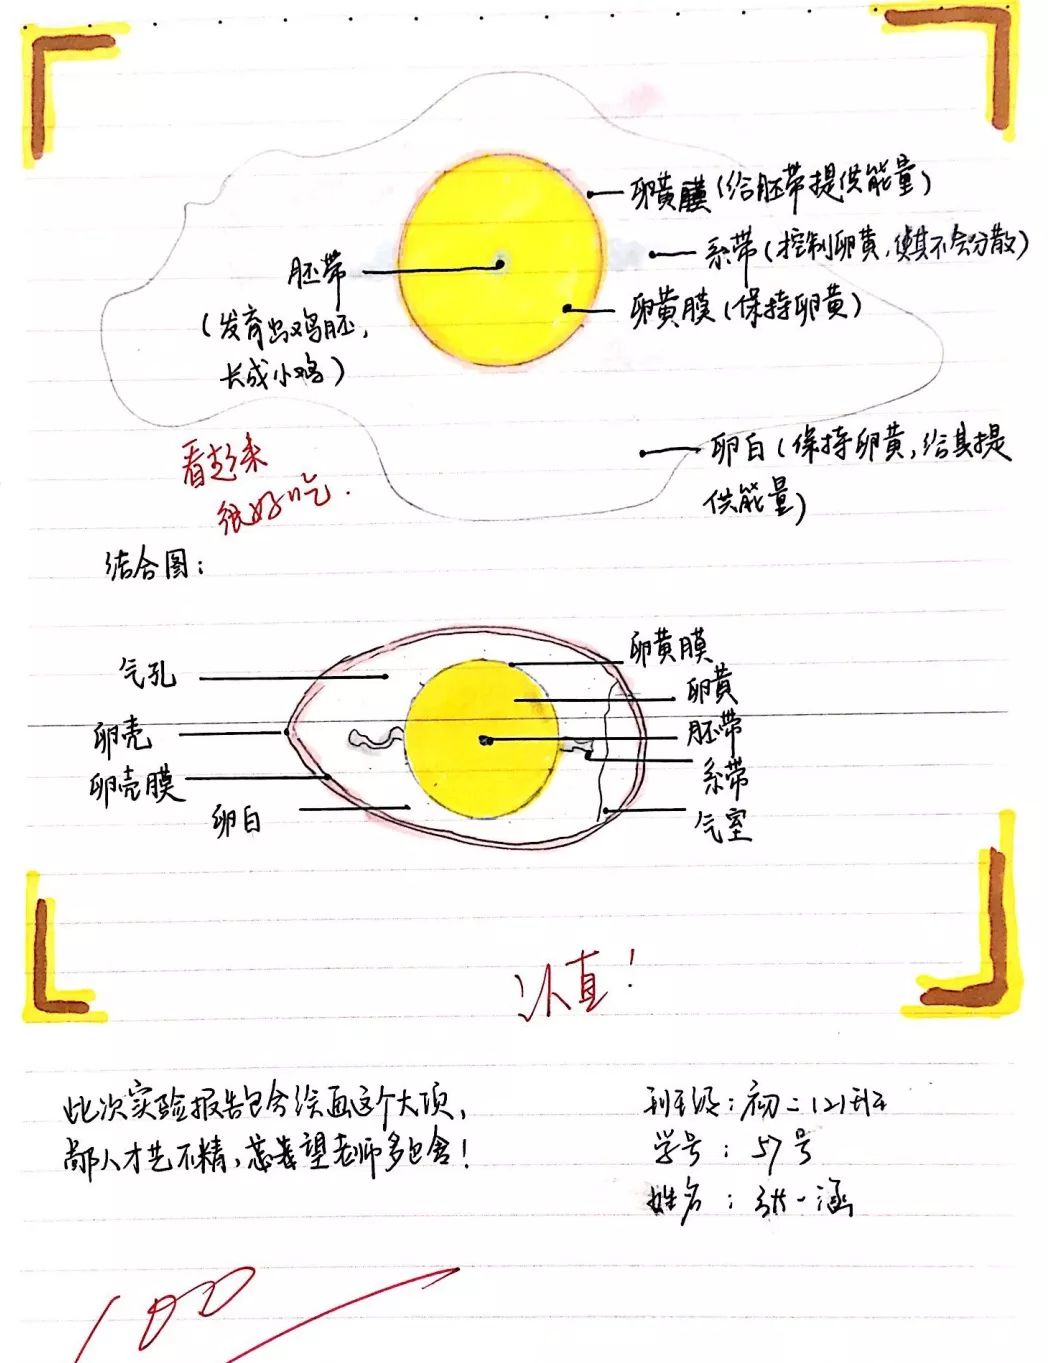 卵黄膜(给胚带提供能量)
系带(控制卵黄,使其不会分散)
胚带
(发育出鸡胚,
长成小鸡)
卵黄膜(保持卵黄)
卵白(保持卵黄,给其提
供能量)
看起来
很好吃.
结合图:
气孔
卵壳
卵壳膜
卵白
卵黄膜
卵黄
胚带
系带
气室
认真!
此次实验报告包含绘画这个大项,
鄙人才艺不精,恳老师多包含!
班级:初二(2)班
学号:57号
姓名:张一涵
100